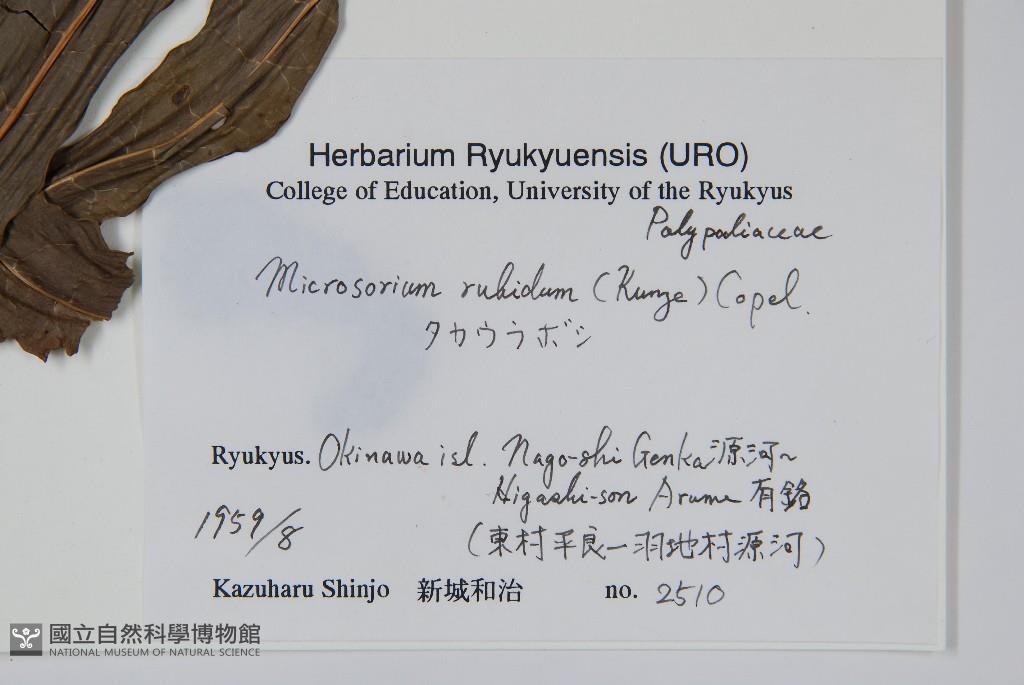 Herbarium Ryukyuensis (URO)
College of Education, University of the Ryukyus
Polypodiaceae
Microsorium rubidum (Kunze) Copel.
タカウラボシ
Ryukyus. Okinawa isl. Nago-shi Genka 源河~
Higashi-son Arume 有銘
1959/8
(東村平良一羽地村源河)
Kazuharu Shinjo 新城和治 no. 2510
國立自然科學博物館
NATIONAL MUSEUM OF NATURAL SCIENCE